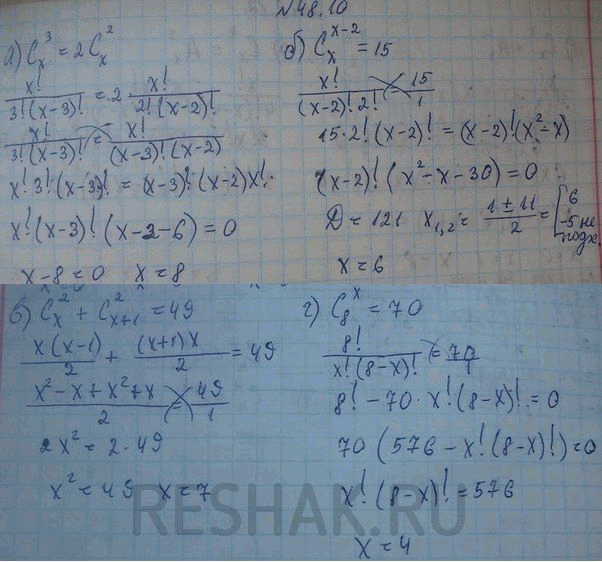 №48.10
а) C_x^3 = 2C_x^2
x!/(3!(x-3)!) = 2 · x!/(2!(x-2)!)
x!/(3!(x-3)!) = x!/((x-3)!(x-2))
x! 3!(x-3)! = (x-3)!(x-2)x!
x!(x-3)!(x-2-6) = 0
x-8=0 x=8
б) C_x^{x-2} = 15
x!/((x-2)! 2!) = 15/1
15·2!(x-2)! = (x-2)!(x²-x)
(x-2)!(x²-x-30) = 0
D = 121 x_{1,2} = (1±11)/2 = [6 -5 не подх.
x = 6
в) C_x^2 + C_{x+1}^2 = 49
x(x-1)/2 + (x+1)x/2 = 49
(x²-x+x²+x)/2 = 49/1
2x² = 2·49
x² = 49 x = 7
г) C_8^x = 70
8!/(x!(8-x)!) = 70/1
8! - 70·x!(8-x)! = 0
70(576 - x!(8-x)!) = 0
x!(8-x)! = 576
x = 4
RESHAK.RU